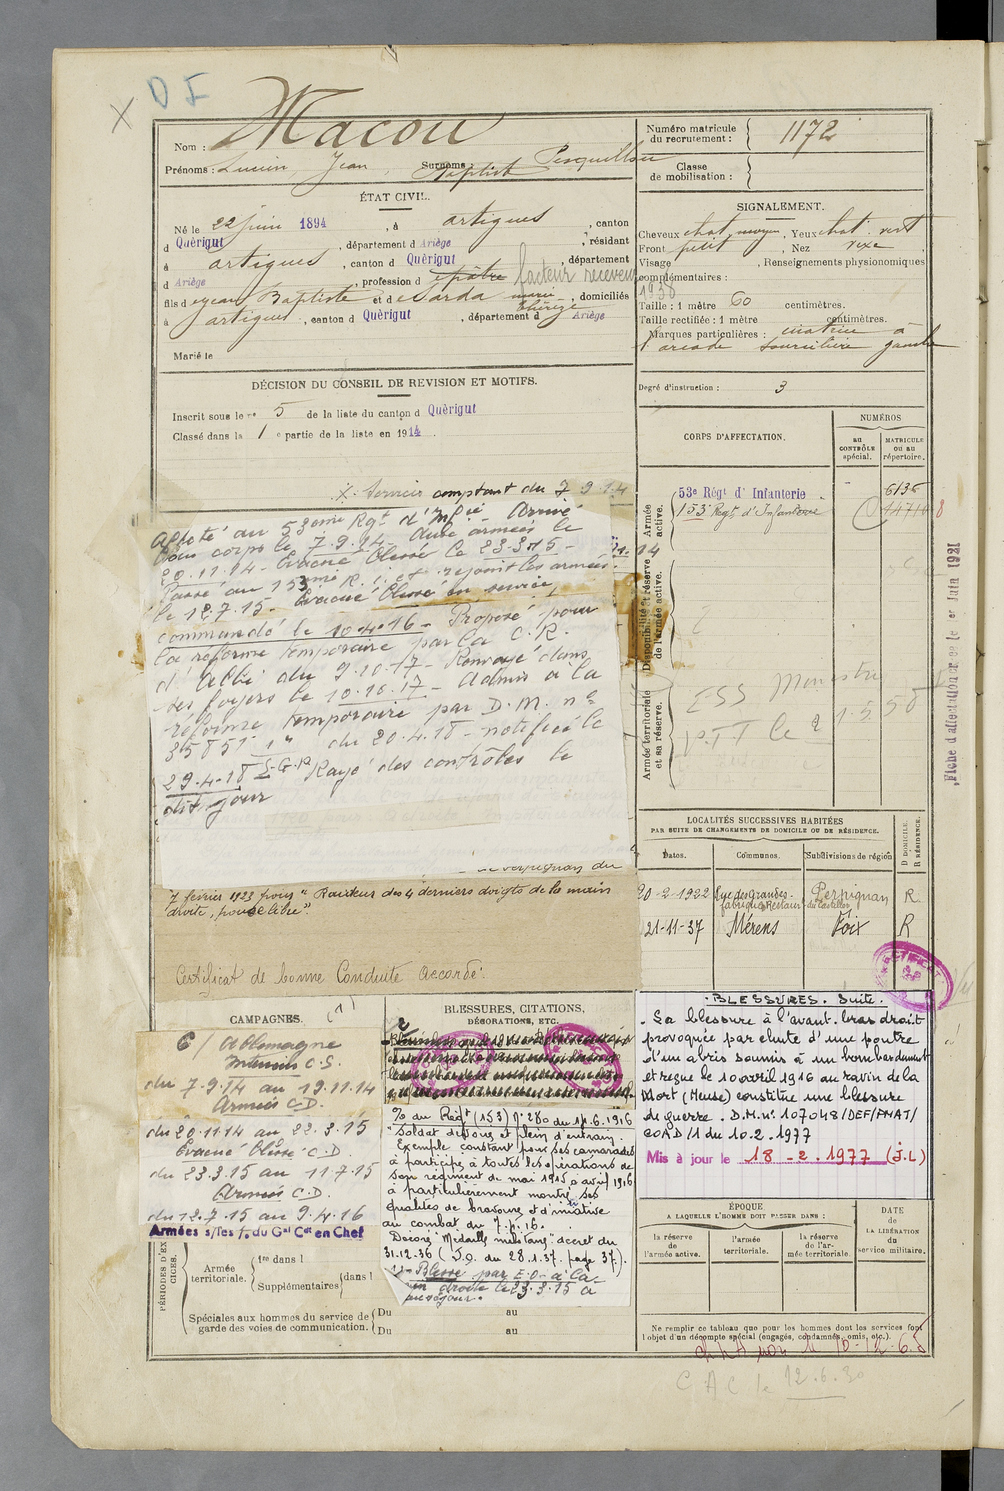 D I
Nom : Macou
Prénoms : Lucien, Jean, Baptiste Surnoms :
ÉTAT CIVIL.
Né le 22 juin 1894, à Artigues, canton
d Quérigut, département d Ariège, résidant
à Artigues, canton d Quérigut, département
d Ariège, profession d facteur receveur
fils de Jean Baptiste et de Sarda Marie Thérèse, domiciliés
à Artigues, canton d Quérigut, département d Ariège
Marié le
DÉCISION DU CONSEIL DE REVISION ET MOTIFS.
Inscrit sous le n° 5 de la liste du canton d Quérigut
Classé dans la 1 e partie de la liste en 1914.
Numéro matricule du recrutement : 1172
Classe de mobilisation :
SIGNALEMENT.
Cheveux chat. moyen, Yeux chat. vert
Front petit, Nez vexe
Visage , Renseignements physionomiques
complémentaires :
1938
Taille : 1 mètre 60 centimètres.
Taille rectifiée : 1 mètre centimètres.
Marques particulières : cicatrice à
l'arcade sourcilière gauche
Degré d'instruction : 3
X. Service comptant du 7.9.14
Affecté au 53ème Rgt d'Infie Arrivé
au corps le 7.9.14 - Aux armées le
20.11.14 - Evacué blessé le 23.3.15 -
Passé au 153ème R.I. et rejoint les armées
le 12.7.15 - Evacué blessé en service
commandé le 10.4.16 - Proposé pour
la réforme temporaire par la C.R.
d'Albi du 9.10.17 - Renvoyé dans
ses foyers le 10.10.17 - Admis à la
réforme temporaire par D.M. n°
35851 du 20.4.18 - notifiée le
29.4.18 Rayé des contrôles le
dit jour
Perpignan du
7 février 1923 pour "Raideur des 4 derniers doigts de la main
droite, pouce libre".
Certificat de bonne Conduite accordé.
CORPS D'AFFECTATION.
NUMÉROS
au CONTRÔLE spécial.
MATRICULE ou au répertoire.
Armée active.
53e Régt d'Infanterie 6135
153e Regt d'Infanterie
Disponibilité et réserve de l'armée active.
Armée territoriale et sa réserve.
P.T.T le 2
Fiche d'affectation créée le 1er Juin 1921
LOCALITÉS SUCCESSIVES HABITÉES
PAR SUITE DE CHANGEMENTS DE DOMICILE OU DE RÉSIDENCE.
Dates. Communes. Subdivisions de région D DOMICILE. R RÉSIDENCE.
20-2-1922 Rue des Grandes- Perpignan R
21-11-37 Mérens Foix R
CAMPAGNES.
C / Allemagne
Intérieur C.S
du 7.9.14 au 19.11.14
Armées C.D.
du 20.11.14 au 22.3.15
Évacué blessé C.D.
du 23.3.15 au 11.7.15
Armées C.D.
du 12.7.15 au 9.4.16
Armées s/les /o. du Gal Ct en Chef
BLESSURES, CITATIONS,
DÉCORATIONS, ETC.
/o du Regt (153) N° 280 du 14.6.1916
"Soldat dévoué et plein d'entrain.
Exemple constant pour ses camarades
a participé à toutes les opérations de
son régiment de mai 1915 à avril 1916
a particulièrement montré ses
qualités de bravoure et d'initiative
au combat du
Décoré "Médaille militaire" décret du
31.12.36 (J.O. du 28.1.37. page 37).
Blessé par E.O. à la
main droite le 23.3.15 à
BLESSURES. Suite.
. Sa blessure à l'avant-bras droit
provoquée par chute d'une poutre
d'un abris soumis à un bombardement
et reçue le 10 avril 1916 au ravin de la
Mort (Meuse) constitue une blessure
de guerre. D.M. n°. 107048/DEF/PMAT/
COAD/1 du 10.2.1977
Mis à jour le 18-2.1977 (J.L)
PÉRIODES D'EXERCICES.
Armée territoriale.
1re dans l
Supplémentaires dans l
Spéciales aux hommes du service de
garde des voies de communication.
Du au
Du au
ÉPOQUE
A LAQUELLE L'HOMME DOIT PASSER DANS :
la réserve de l'armée active.
l'armée territoriale.
la réserve de l'armée territoriale.
DATE de LA LIBÉRATION du service militaire.
Ne remplir ce tableau que pour les hommes dont les services font
l'objet d'un décompte spécial (engagés, condamnés, omis, etc.).
C A C le 12.6.30